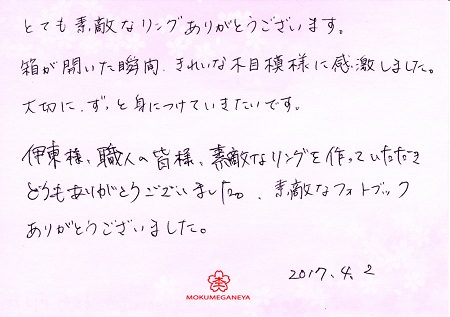 とても素敵なリングありがとうございます。
箱が開いた瞬間、きれいな木目模様に感激しました。
大切に、ずっと身につけていきたいです。
伊東様、職人の皆様、素敵なリングを作っていただき
どうもありがとうございました。、素敵なフォトブック
ありがとうございました。
2017.4.2
MOKUMEGANEYA